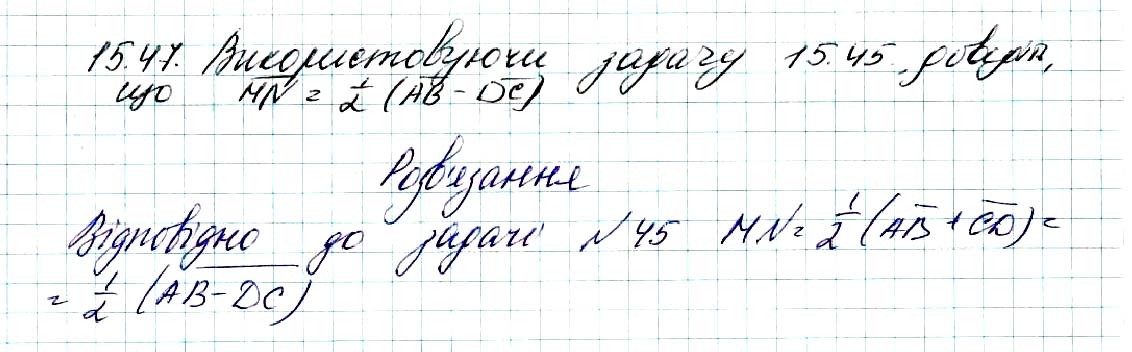 15.47. Використовуючи задачу 15.45, доведіть,
що M̅N̅ = 1/2 (A̅B̅ - D̅C̅)
Розв'язання
Відповідно до задачі №45 MN = 1/2 (A̅B̅ + C̅D̅) =
= 1/2 (A̅B̅ - D̅C̅)